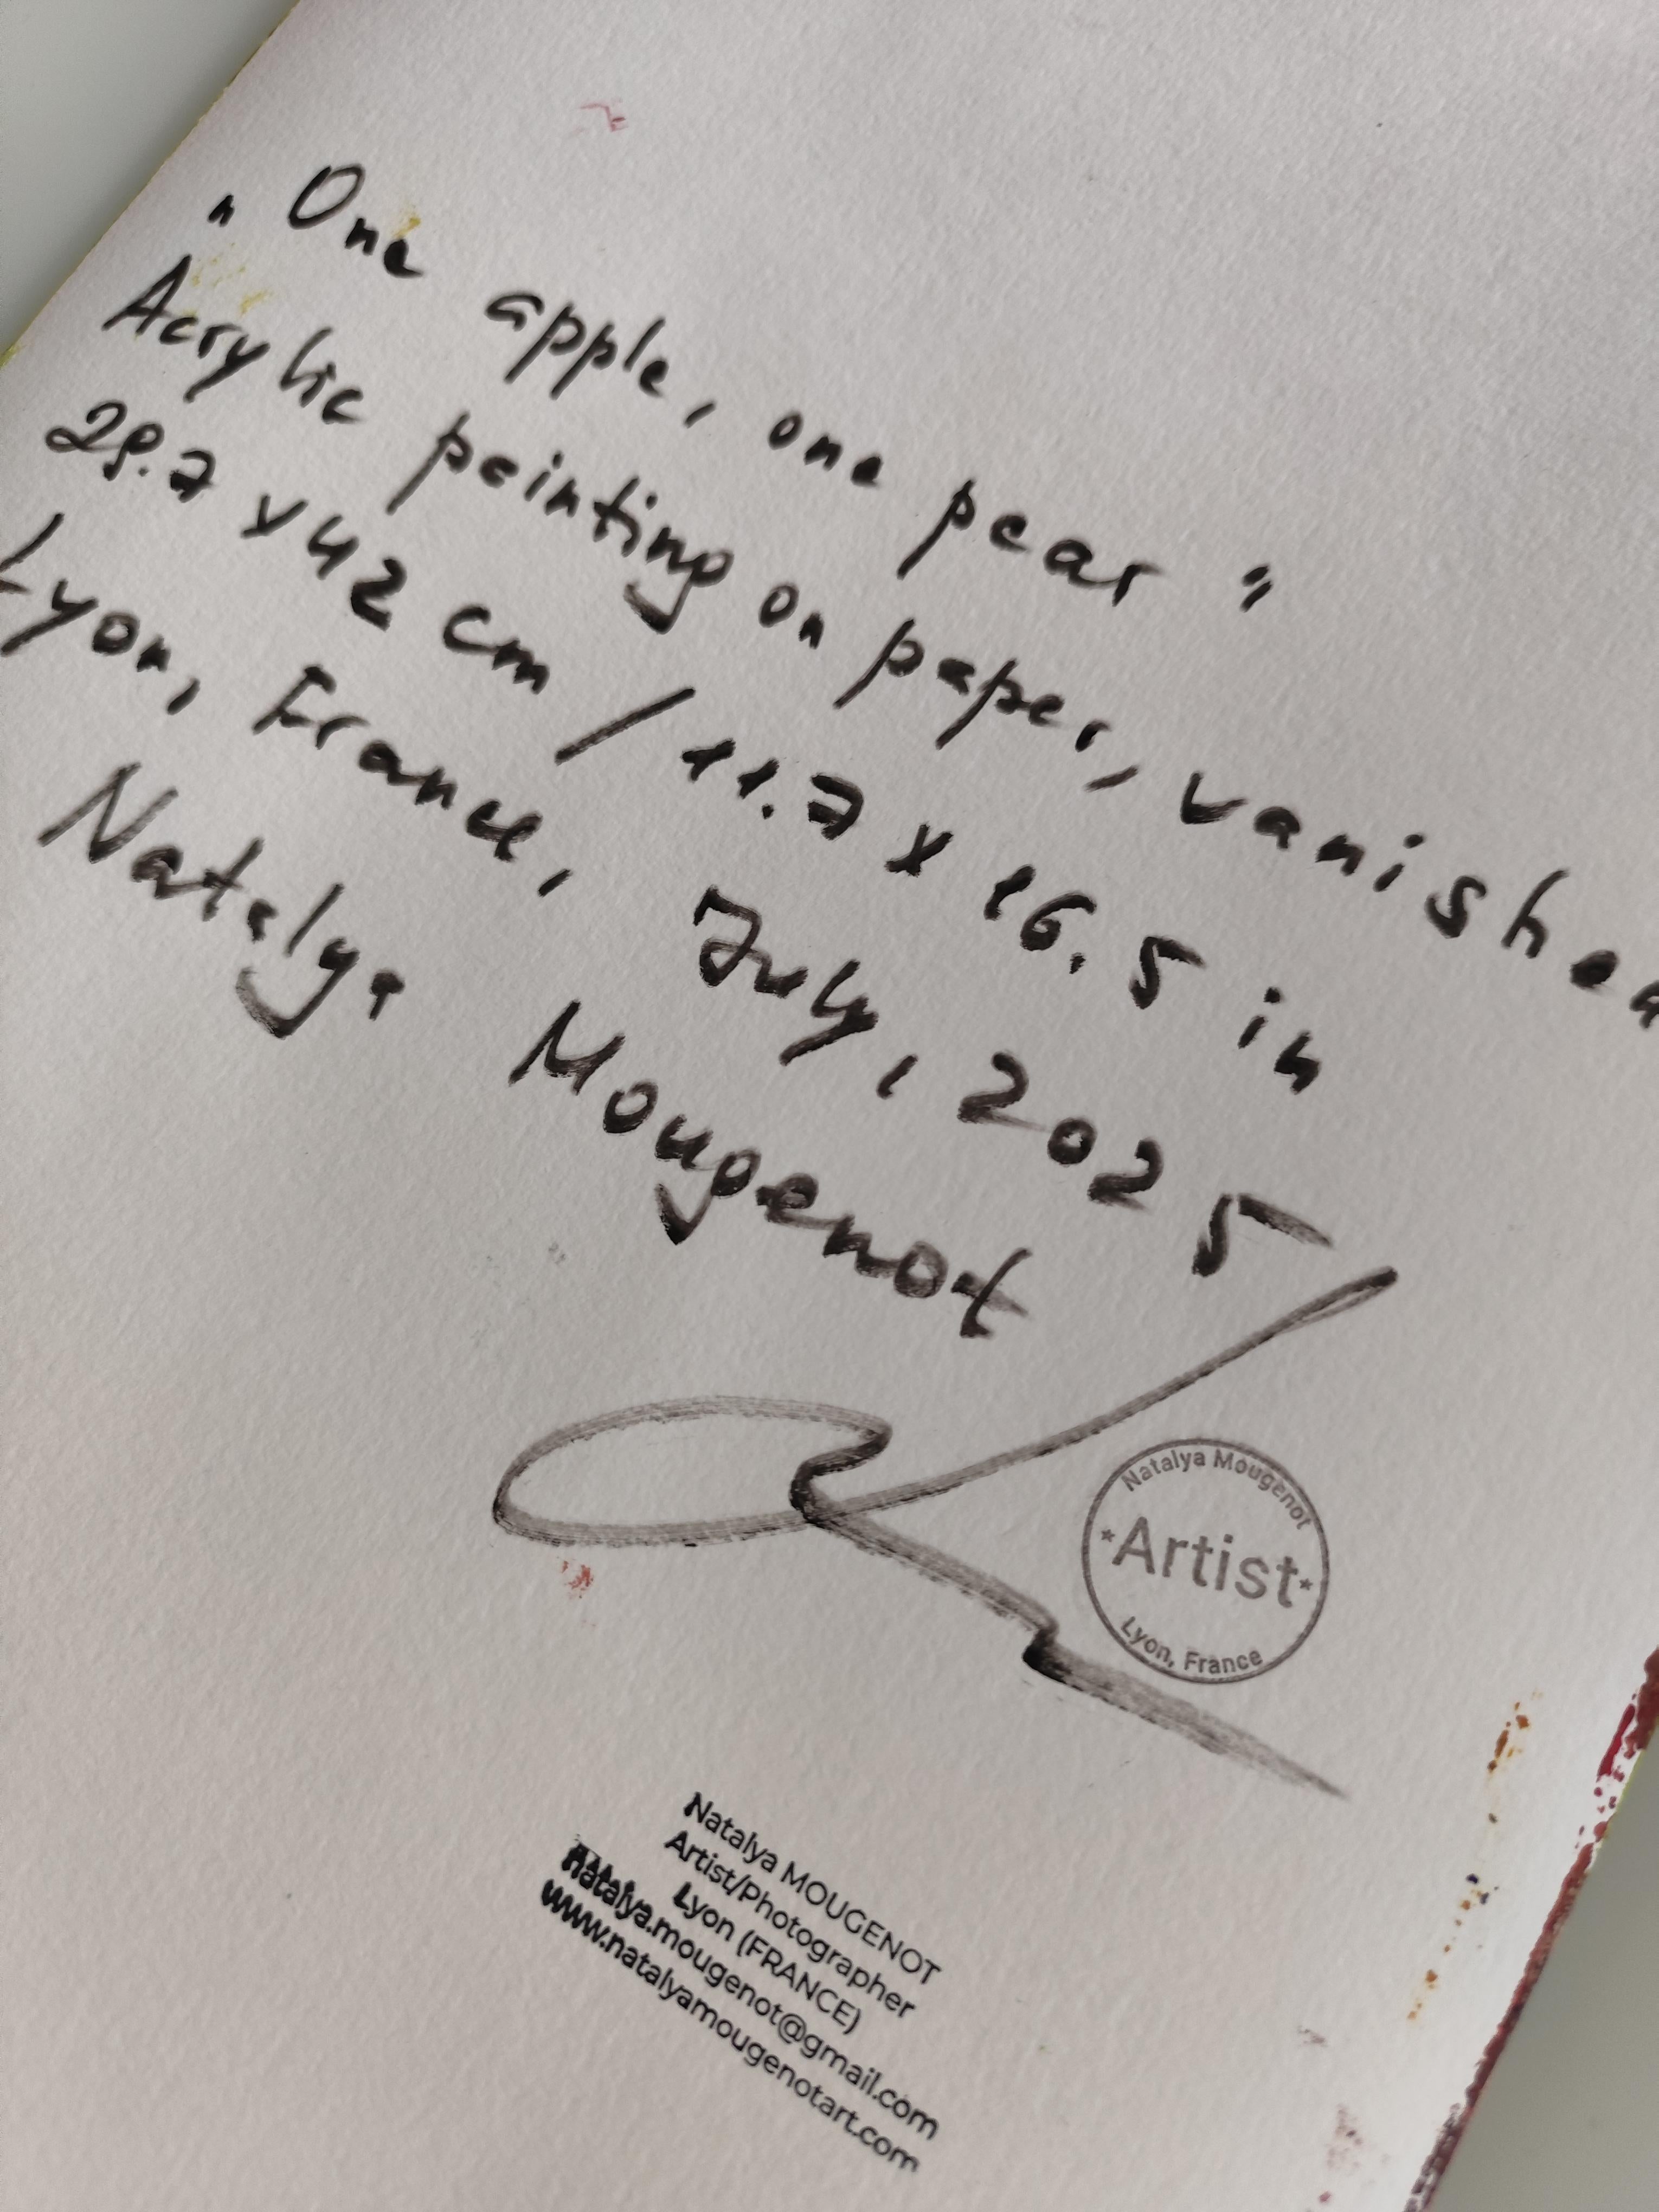 "One apple, one pear"
Acrylic painting on paper, vanished
29.7 x 42 cm / 11.7 x 16.5 in
Lyon, France, July, 2025
Natalya Mougenot
Natalya Mougenot
*Artist*
Lyon, France
Natalya MOUGENOT
Artist/Photographer
Lyon (FRANCE)
natalya.mougenot@gmail.com
www.natalyamougenotart.com